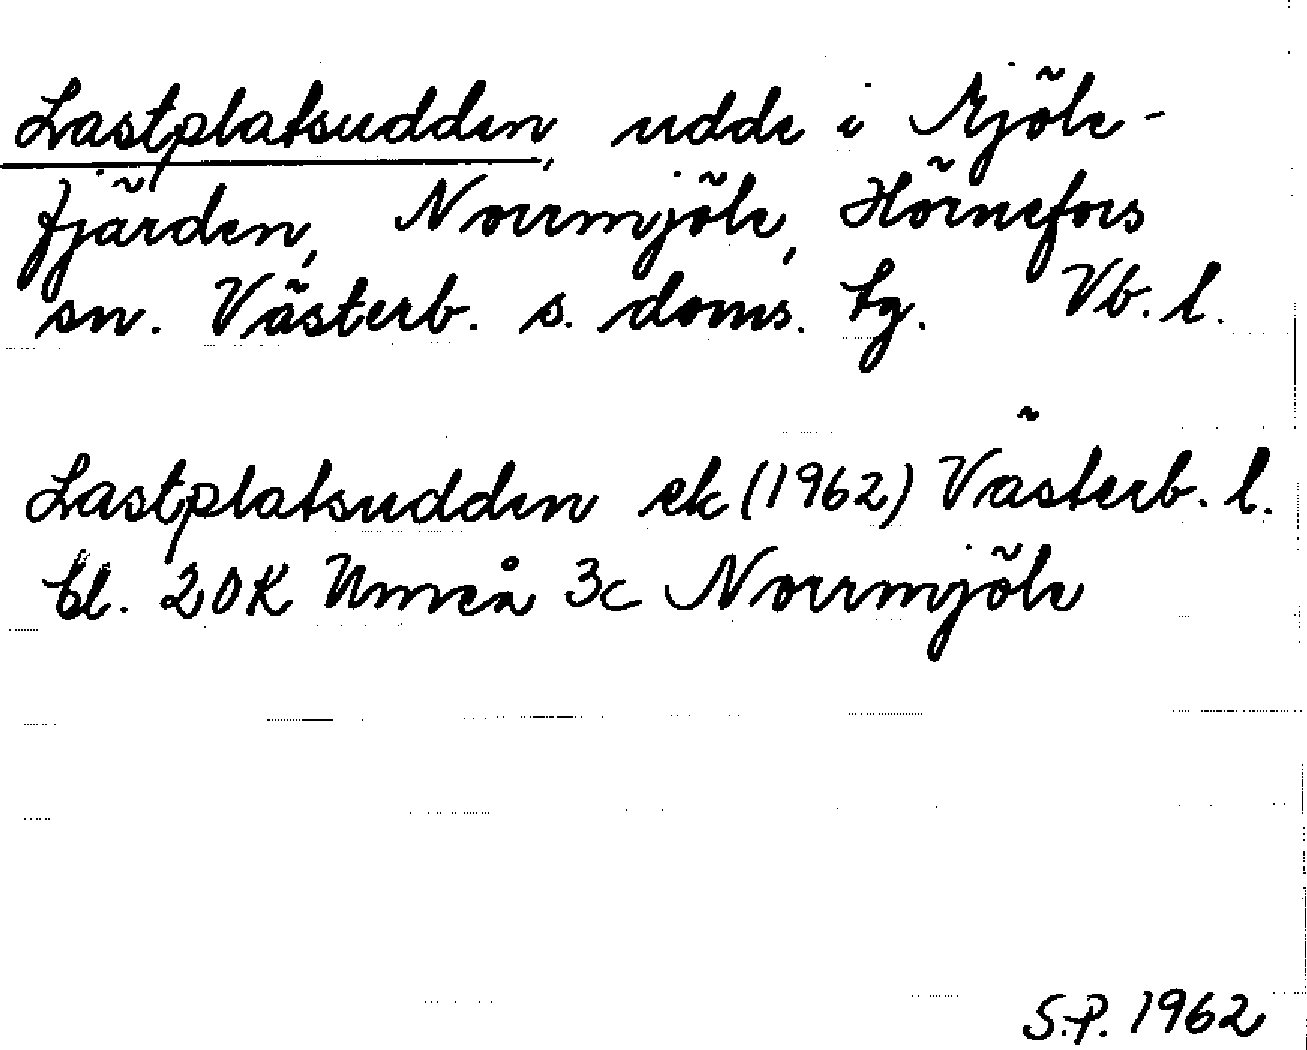 Lastplatsudden, udde i Mjöle-
fjärden, Norrmjöle, Hörnefors
sn. Västerb. s. doms. tg. Vb. l.
Lastplatsudden ek (1962) Västerb. l.
bl. 20K Umeå 3c Norrmjöle
S.P. 1962